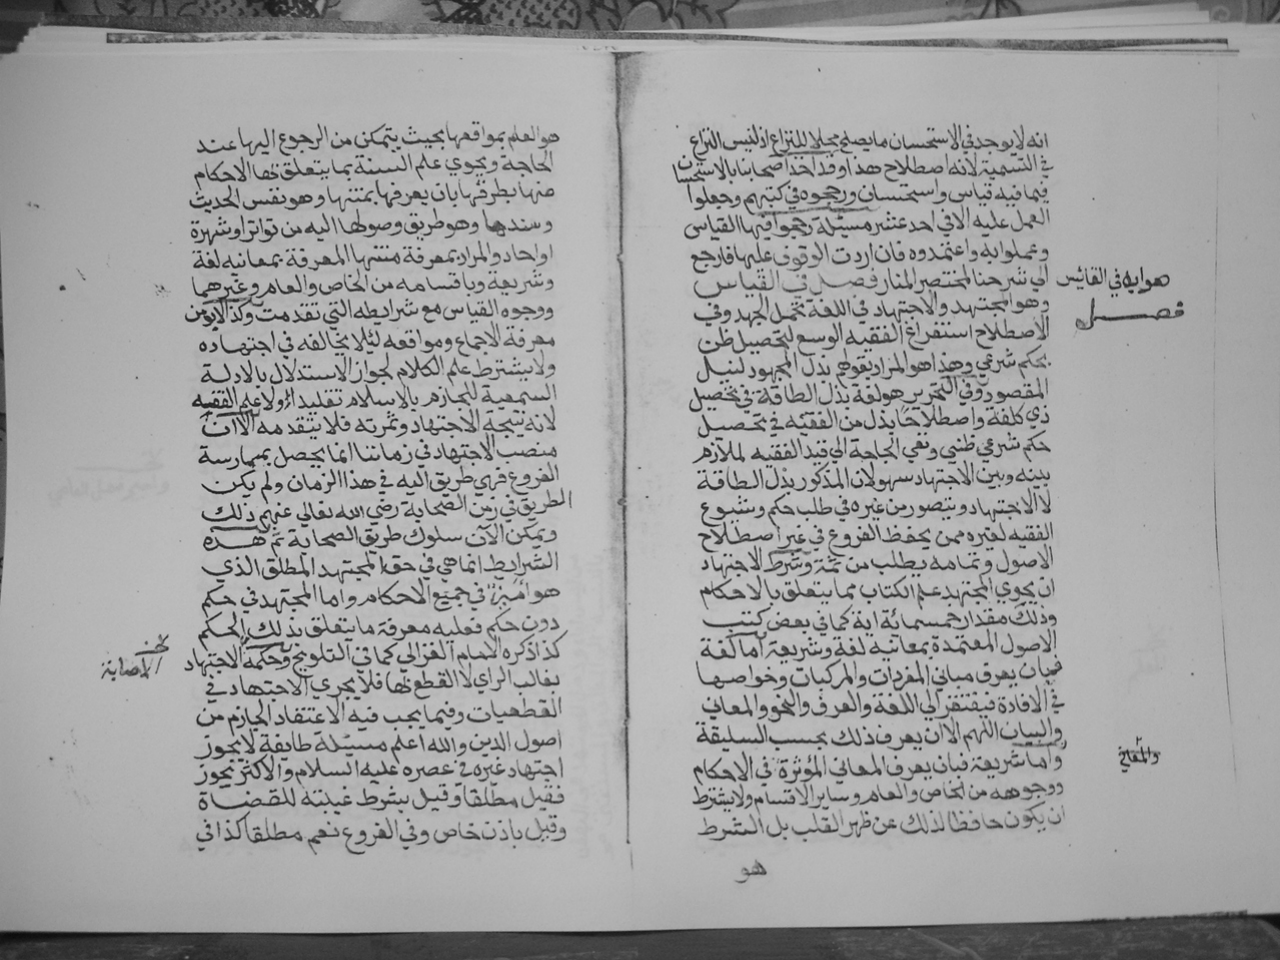 انه لا يوجد في الاستحسان ما يصلح محلا للنزاع اذ ليس النزاع
في التسمية لانه اصطلاح هذا وقد اخذ اصحابنا بالاستحسان
فيما فيه قياس واستحسان ورجحوه في كتبهم وجعلوا
العمل عليه الا في احد عشر مسئلة رجحوا فيها القياس
وعملوا به واعتمدوه فان اردت الوقوف عليها فارجع
الي شرحنا لمختصر المنار فصل في القياس
وهو المجتهد والاجتهاد في اللغة تحمل الجهد وفي
الاصطلاح استفراغ الفقيه الوسع لتحصيل ظن
بحكم شرعي وهذا هو المراد بقولهم بذل المجهود لنيل
المقصود وفي التحرير هو لغة بذل الطاقة في تحصيل
ذي كلفة واصطلاحا بذل من الفقيه في تحصيل
حكم شرعي ظني ونفي الحاجة الي قيد الفقيه لملازم
بينه وبين الاجتهاد سهو لان المذكور بذل الطاقة
لا الاجتهاد ويتصور من غيره في طلب حكم وشيوع
الفقيه لغيره ممن يحفظ الفروع في غير اصطلاح
الاصول وتمامه يطلب من ثمة وشرط الاجتهاد
ان يحوي المجتهد علم الكتاب مما يتعلق بالاحكام
وذلك مقدار خمسمائة اية كما في بعض كتب
الاصول المعتمدة بمعانيه لغة وشريعة اما لغة
فبان يعرف مباني المفردات والمركبات وخواصها
في الافادة فيفتقر الي اللغة والصرف والنحو والمعاني
والبيان اللهم الا ان يعرف ذلك بحسب السليقة
واما شريعة فبان يعرف المعاني المؤثرة في الاحكام
ووجوهه من الخاص والعام وساير الاقسام ولا يشترط
ان يكون حافظا لذلك عن ظهر القلب بل الشرط
هو
في القائس
فصل
هو العلم بمواقعها بحيث يتمكن من الرجوع اليها عند
الحاجة ويحوي علم السنة بما يتعلق بها الاحكام
منها بطرقها بان يعرفها بمتنها وهو نفس الحديث
وسندها وهو طريق وصولها اليه من تواتر او شهرة
او احاد والمراد بمعرفة متنها المعرفة بمعانيه لغة
وشريعة وباقسامه من الخاص والعام وغيرهما
ووجوه القياس مع شرايطه التي تقدمت وكذا لابد من
معرفة الاجماع ومواقعه ليلا يخالفه في اجتهاده
ولا يشترط علم الكلام لجواز الاستدلال بالادلة
السمعية للجازم بالاسلام تقليدا ولا علم الفقه
لانه نتيجة الاجتهاد وثمرته فلا يتقدمه الا ان
منصب الاجتهاد في زماننا انما يحصل بممارسة
الفروع فهي طريق اليه في هذا الزمان ولم يكن
الطريق في زمن الصحابة رضي الله تعالي عنهم ذلك
ويمكن الان سلوك طريق الصحابة ثم هذه
الشرايط انما هي في حق المجتهد المطلق الذي
هو في جميع الاحكام واما المجتهد في حكم
دون حكم فعليه معرفة ما يتعلق بذلك الحكم
كذا ذكره الامام الغزالي كما في التلويح وحكمه الاجتهاد
بغالب الراي لا القطع بها فلا يجري الاجتهاد في
القطعيات وفيما يجب فيه الاعتقاد الجازم من
اصول الدين والله اعلم مسئلة طايفة لا يجوز
اجتهاد غيره في عصره عليه السلام والاكثر يجوز
فقيل مطلقا وقيل بشرط غيبته للقضاة
وقيل باذن خاص وفي الفروع نعم مطلقا كذا في
الاصابة